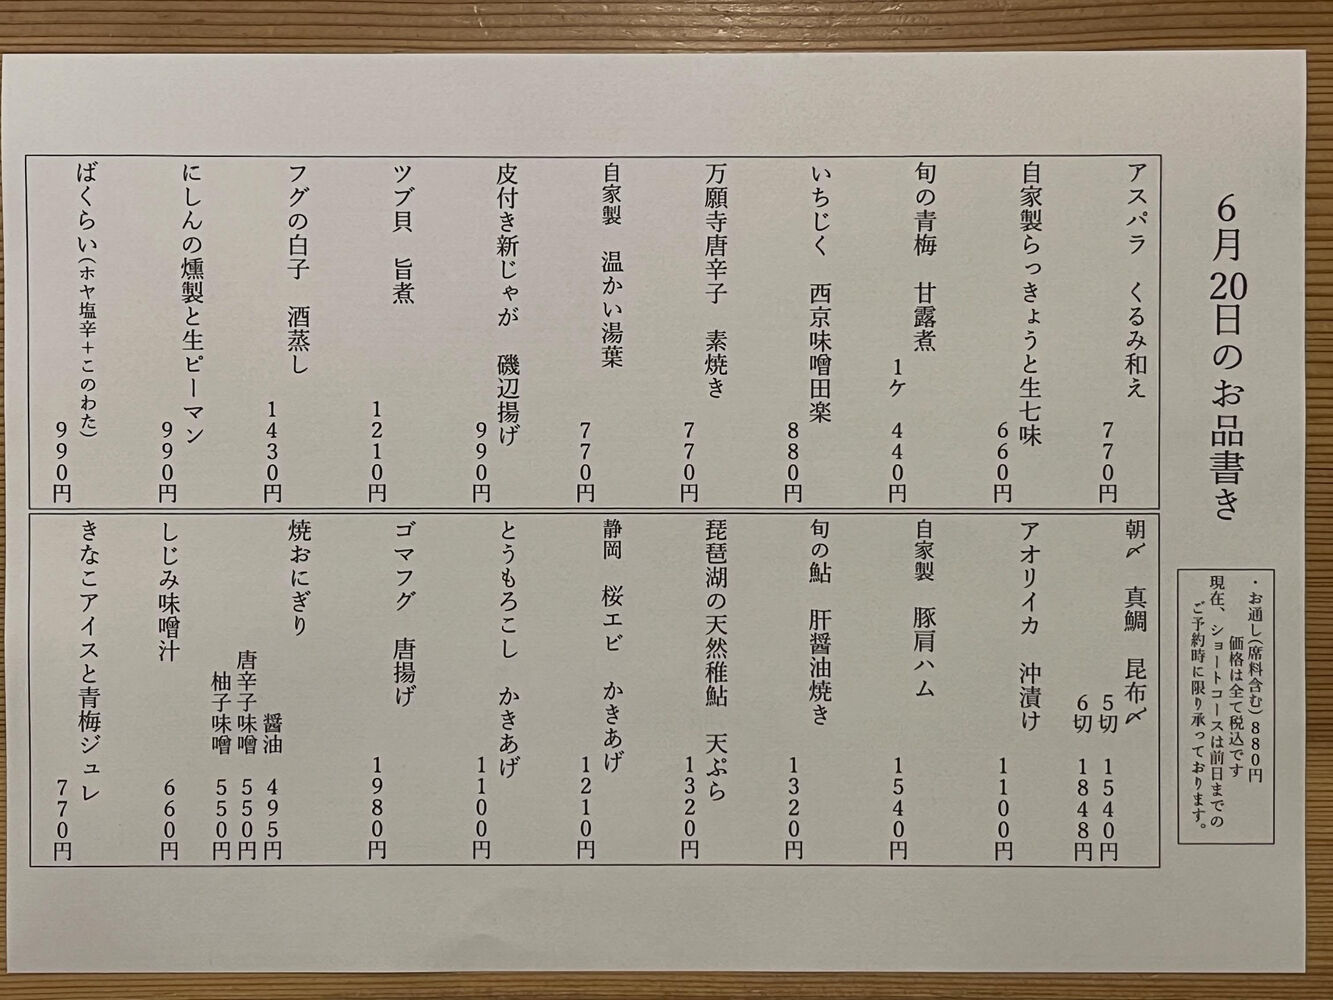 6月20日のお品書き
・お通し(席料含む)880円
価格は全て税込です
現在、ショートコースは前日までの
ご予約時に限り承っております。
アスパラ くるみ和え
770円
自家製らっきょうと生七味
660円
旬の青梅 甘露煮
1ケ 440円
いちじく 西京味噌田楽
880円
万願寺唐辛子 素焼き
770円
自家製 温かい湯葉
770円
皮付き新じゃが 磯辺揚げ
990円
ツブ貝 旨煮
1210円
フグの白子 酒蒸し
1430円
にしんの燻製と生ピーマン
990円
ばくらい(ホヤ塩辛+このわた)
990円
朝〆 真鯛 昆布〆
5切 1540円
6切 1848円
アオリイカ 沖漬け
1100円
自家製 豚肩ハム
1540円
旬の鮎 肝醤油焼き
1320円
琵琶湖の天然稚鮎 天ぷら
1320円
静岡 桜エビ かきあげ
1210円
とうもろこし かきあげ
1100円
ゴマフグ 唐揚げ
1980円
焼おにぎり
醤油 495円
唐辛子味噌 550円
柚子味噌 550円
しじみ味噌汁
660円
きなこアイスと青梅ジュレ
770円